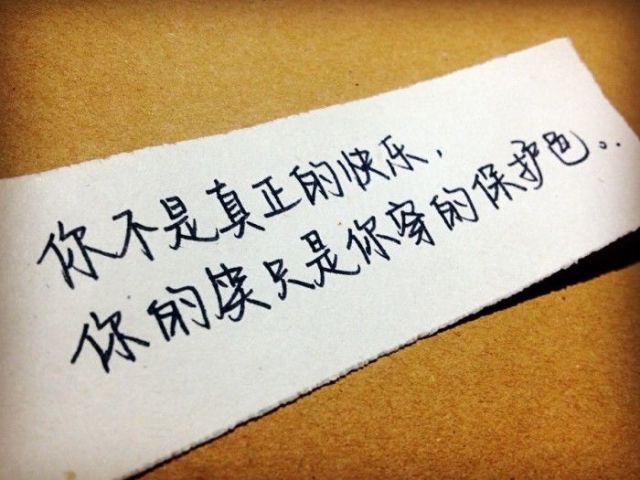 你不是真正的快乐,
你的笑只是你穿的保护色..